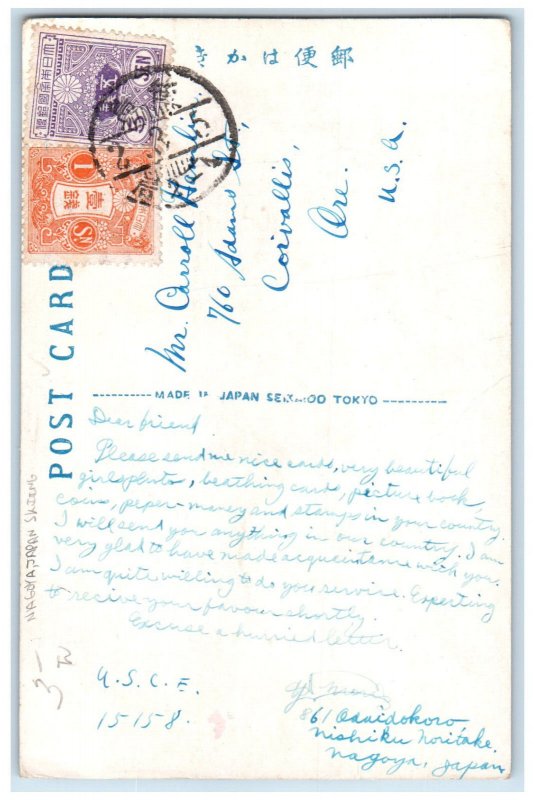 郵便はかき
POST CARD
Mr. Carroll
760 Adams St.,
Corvallis,
Ore.
U.S.A.
MADE IN JAPAN TOKYO
Dear friend
Please send me nice cards, very beautiful
girls photo, beathing cards, picture book,
coins, peper-money and stamps in your country.
I will send you anything in our country. I am
very glad to have made acquaintance with you.
I am quite willing to do you service. Expecting
to recive your favour shortly.
Excuse a hurried letter.
U.S.C.E.
15158.
861 Osaidokoro
Nishiku Noritake.
Nagoya, Japan
NAGOYA JAPAN SKIING
3-
大日本帝國郵便
壹錢
1
SN